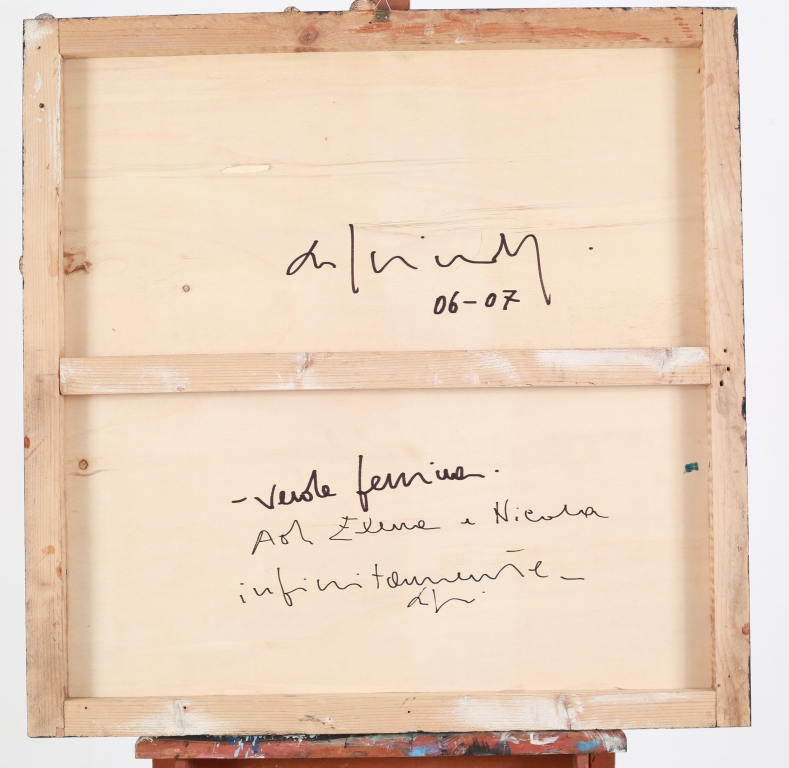 06-07
- Verde femina.
Ad Elena e Nicola
infinitamente_